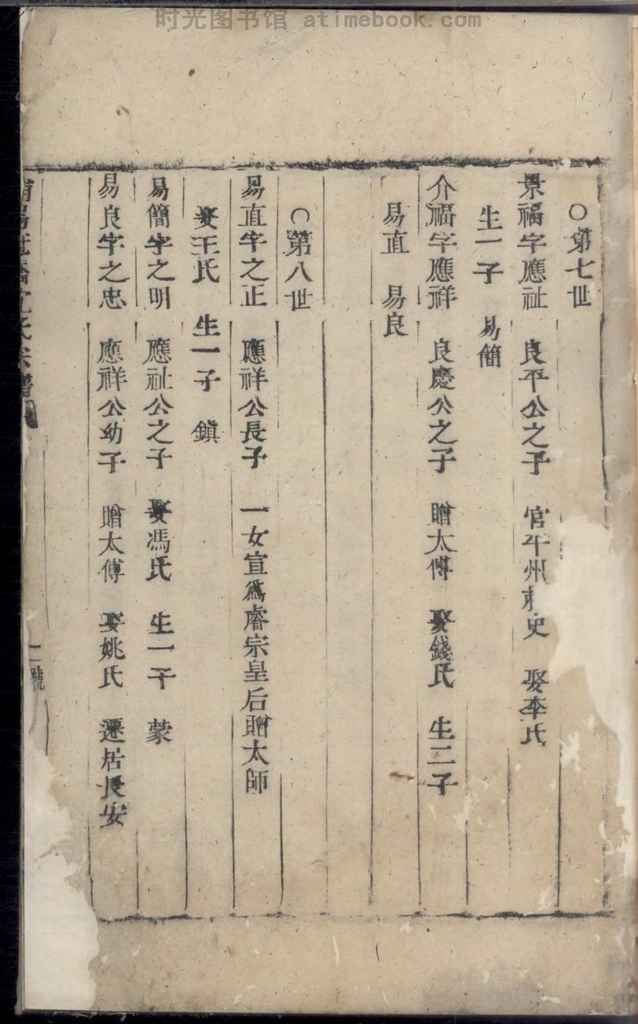 时光图书馆 atimebook.com
○第七世
景福字應祉 良平公之子 官平州刺史 娶李氏
生一子 易簡
介福字應祥 良慶公之子 贈太傅 娶錢氏 生二子
易直 易良
○第八世
易直字之正 應祥公長子 一女宣為睿宗皇后贈太師
娶王氏 生一子 鎮
易簡字之明 應祉公之子 娶馮氏 生一子 蒙
易良字之忠 應祥公幼子 贈太傅 娶姚氏 遷居長安
氏宗譜
二號